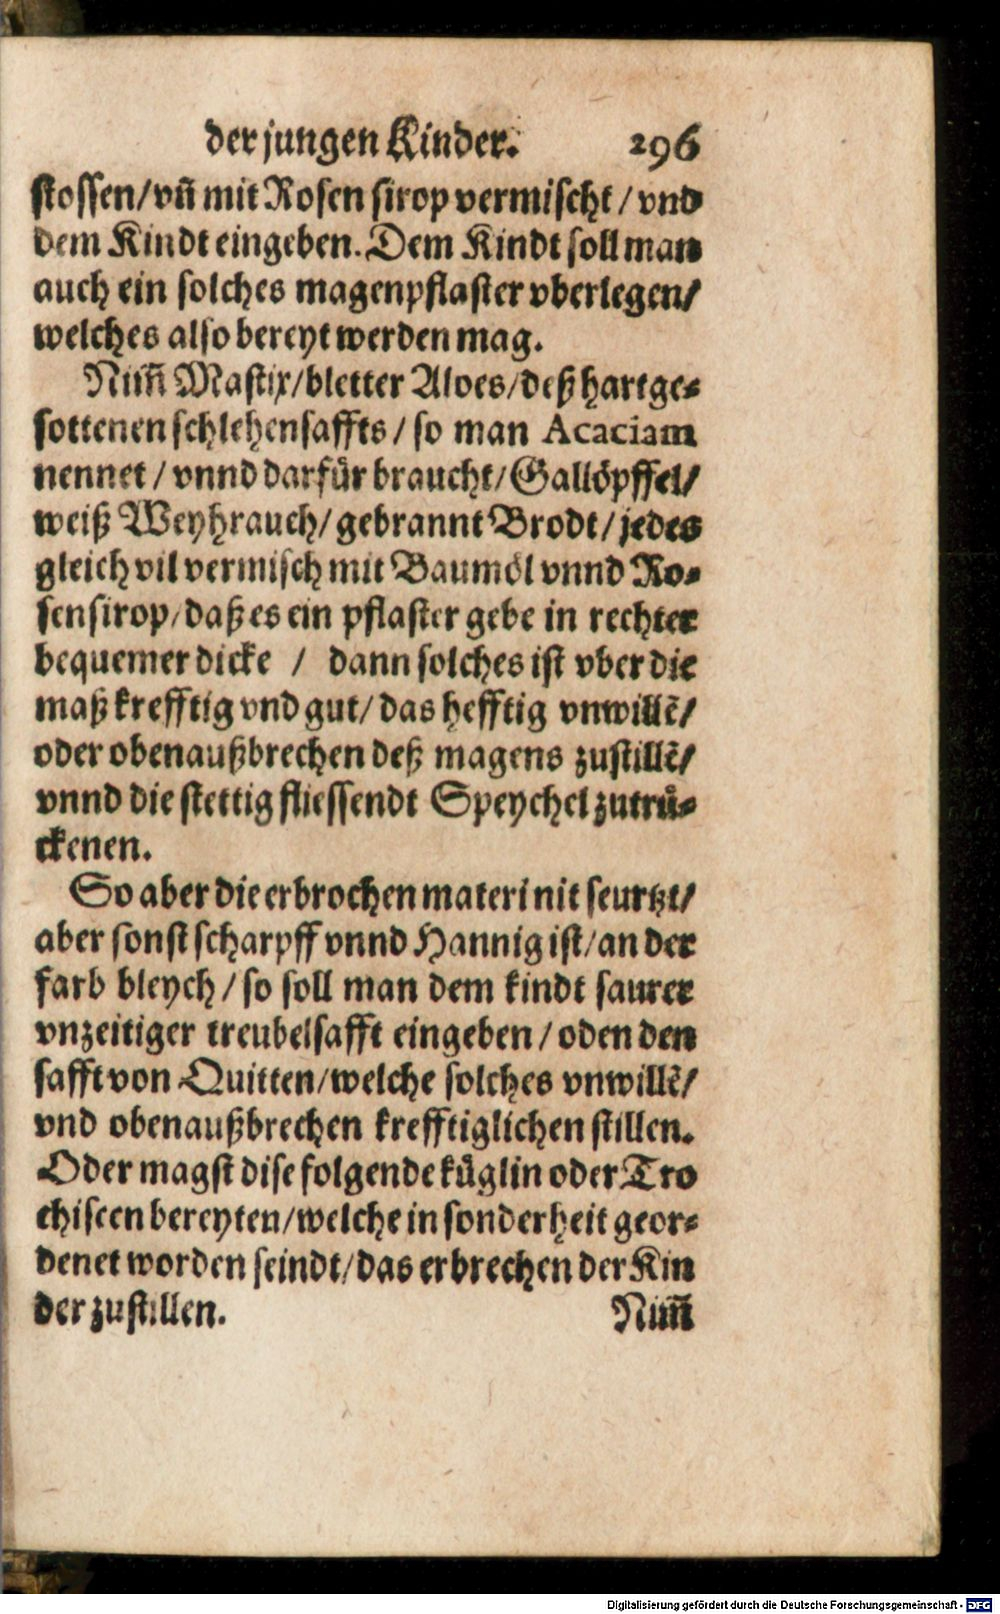 der jungen Kinder. 296
stossen/vn̄ mit Rosen sirop vermischt/vnd
dem Kindt eingeben. Dem Kindt soll man
auch ein solches magenpflaster vberlegen/
welches also bereyt werden mag.
Nim̄ Mastix/bletter Aloes/deß hartge-
sottenen schlehensaffts/so man Acaciam
nennet/vnnd darfür braucht/Gallöpffel/
weiß Weyhrauch/gebrannt Brodt/jedes
gleich vil vermisch mit Baumöl vnnd Ro-
sensirop/daß es ein pflaster gebe in rechter
bequemer dicke / dann solches ist vber die
maß krefftig vnd gut/das hefftig vnwillē/
oder obenaußbrechen deß magens zustillē/
vnnd die stettig fliessendt Speychel zutrü-
ckenen.
So aber die erbrochen materi nit seurtzt/
aber sonst scharpff vnnd Hannig ist/an der
farb bleych/so soll man dem kindt saurer
vnzeitiger treubelsafft eingeben/oden den
safft von Quitten/welche solches vnwillē/
vnd obenaußbrechen krefftiglichen stillen.
Oder magst dise folgende küglin oder Tro
chiscen bereyten/welche in sonderheit geor-
denet worden seindt/das erbrechen der Kin
der zustillen. Nim̄
Digitalisierung gefördert durch die Deutsche Forschungsgemeinschaft - DFG